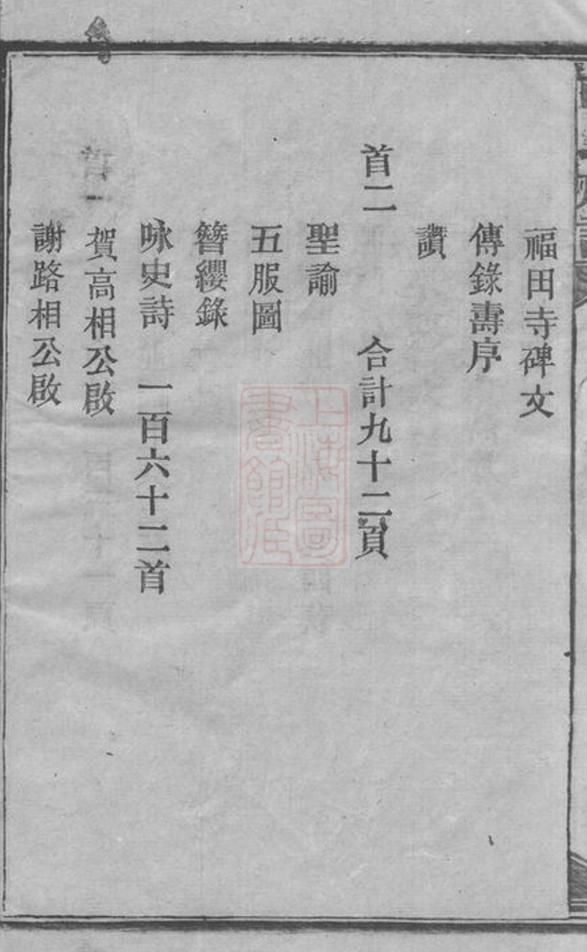 福田寺碑文
傳錄壽序
讚
首二 合計九十二頁
聖諭
五服圖
簪纓錄
咏史詩 一百六十二首
賀高相公啟
謝路相公啟
上海圖書館藏